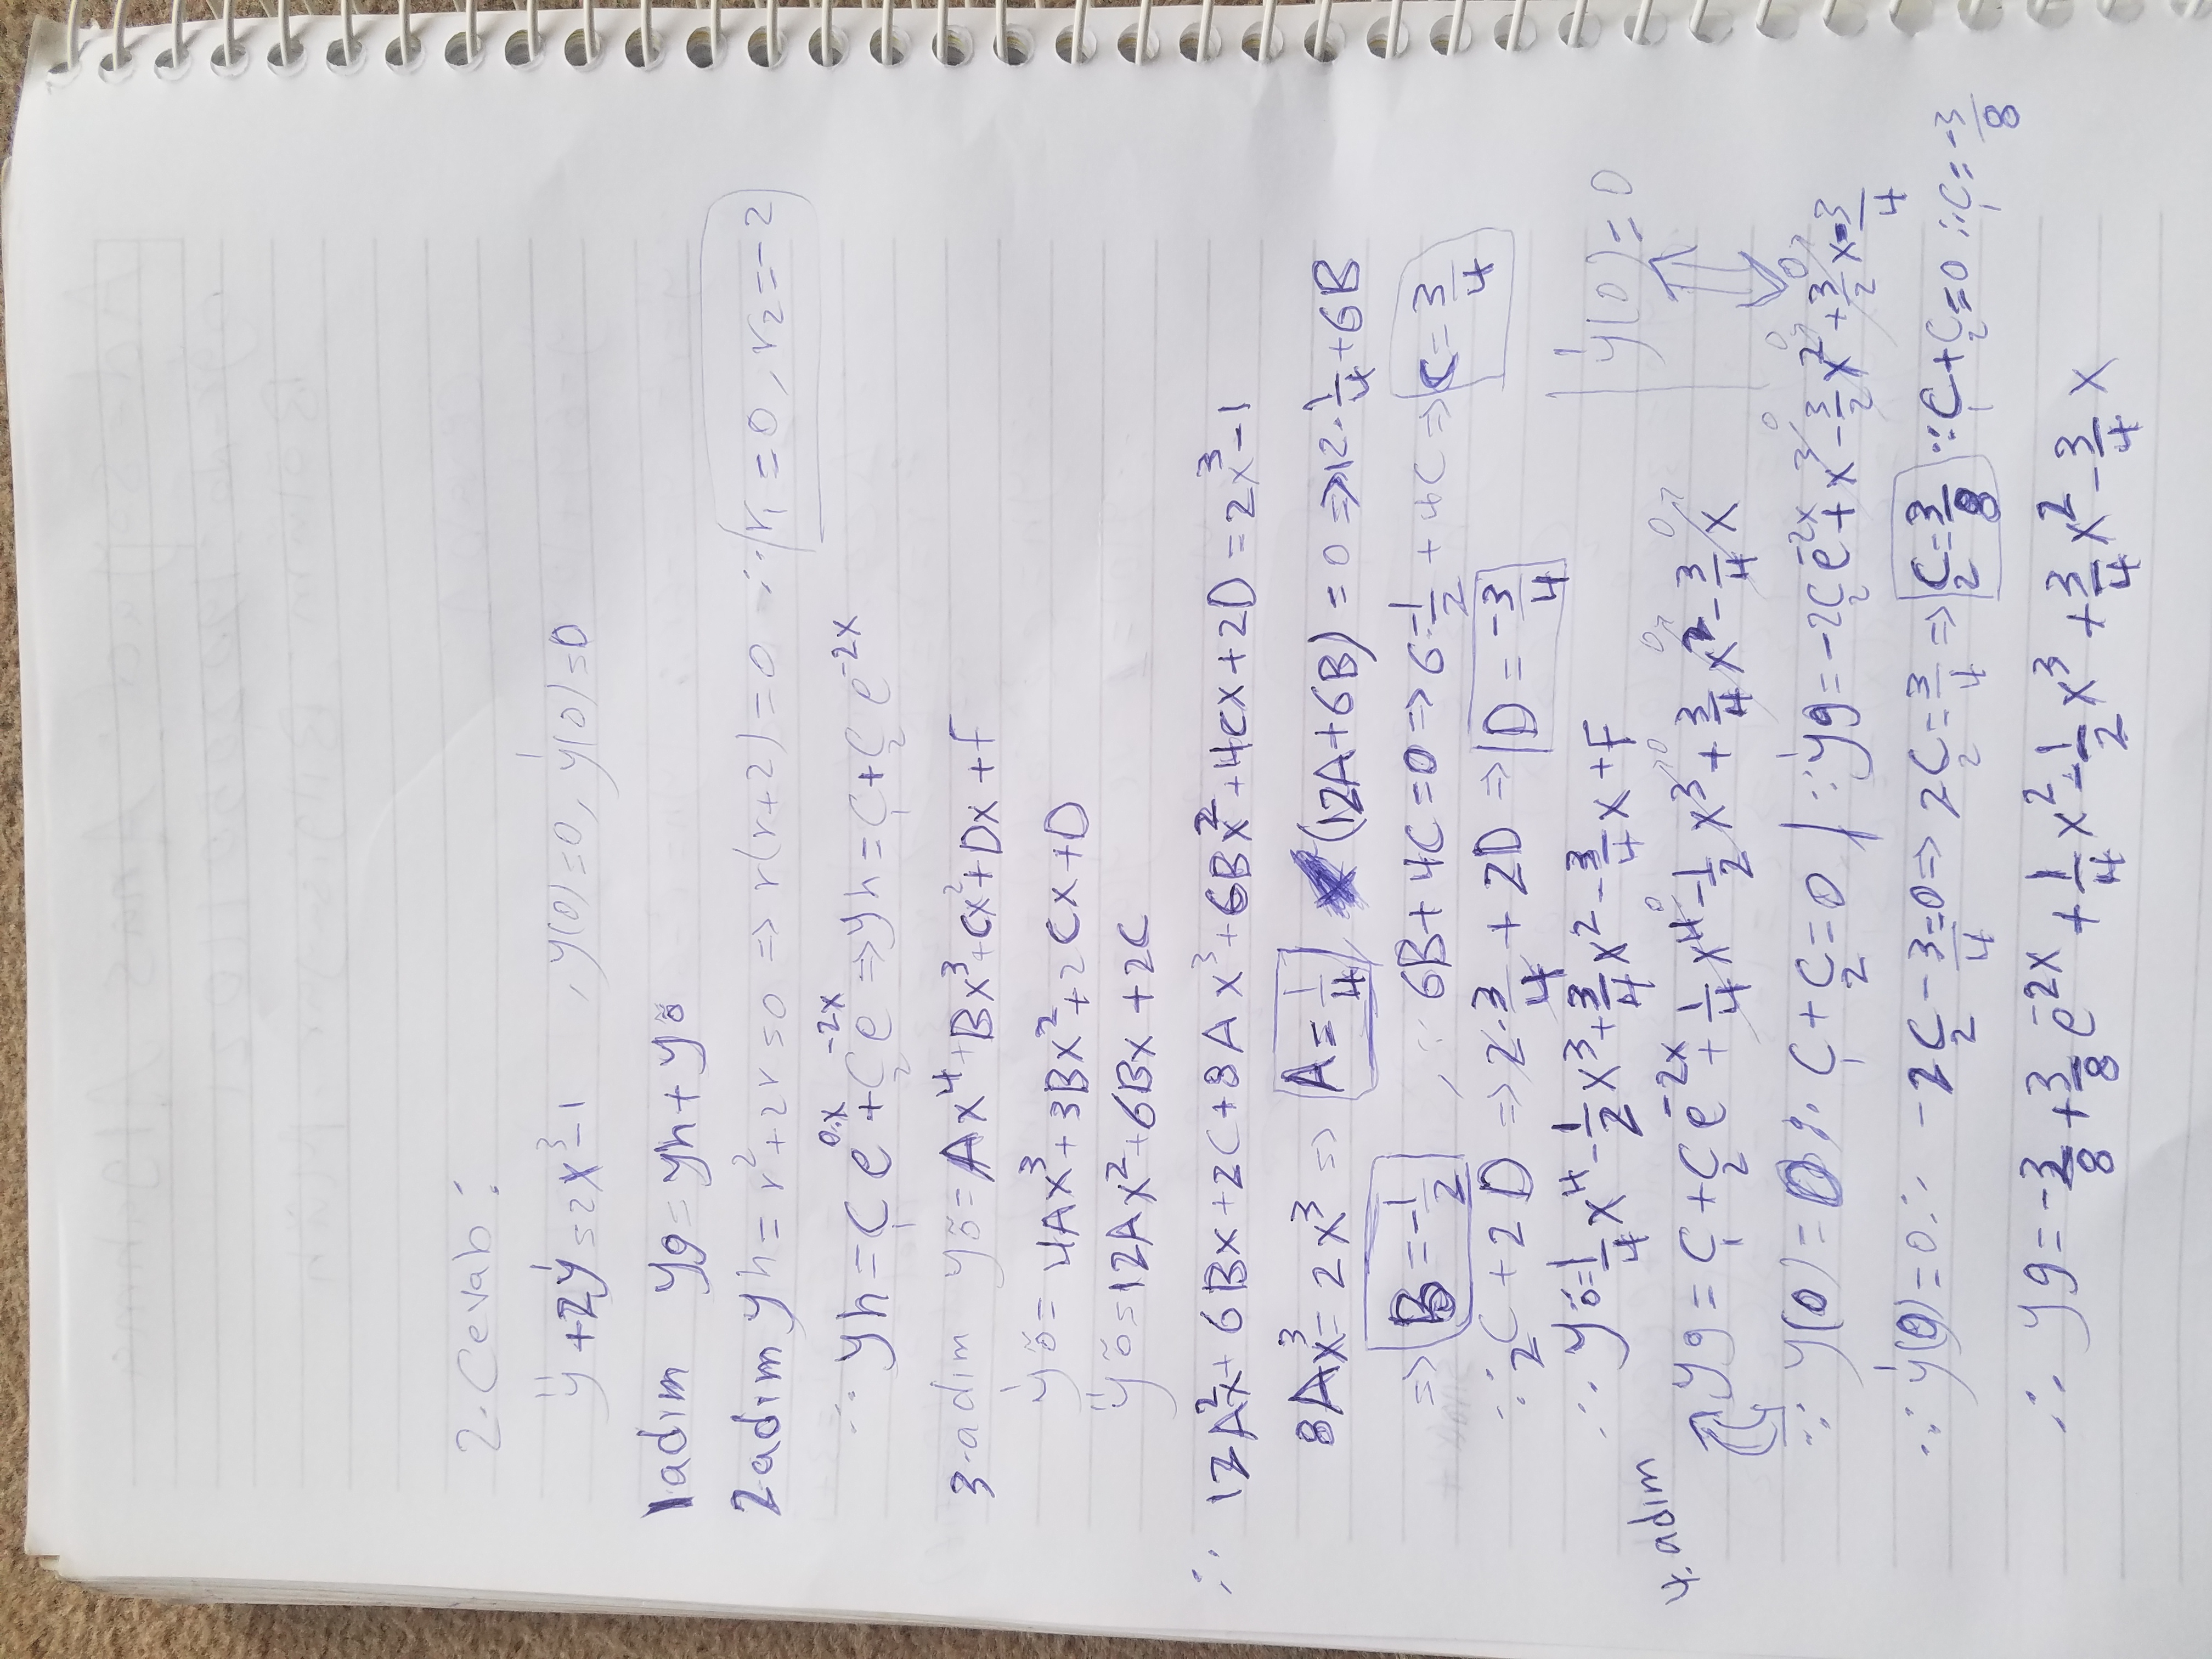 2. Cevab :
y'' + 2y' = 2x³ - 1 , y(0) = 0, y'(0) = 0
1 adım yg = yh + yö
2 adım yh = r² + 2r = 0 ⇒ r(r+2) = 0 ∴ r₁ = 0, r₂ = -2
∴ yh = C₁ e^0.x + C₂ e^-2x ⇒ yh = C₁ + C₂ e^-2x
3. adım yö = Ax⁴ + Bx³ + Cx² + Dx + F
y'ö = 4Ax³ + 3Bx² + 2Cx + D
y''ö = 12Ax² + 6Bx + 2C
∴ 12Ax² + 6Bx + 2C + 8Ax³ + 6Bx² + 4Cx + 2D = 2x³ - 1
8Ax³ = 2x³ ⇒ A = 1/4, (12A + 6B) = 0 ⇒ 12 . 1/4 + 6B
⇒ B = -1/2 , ∵ 6B + 4C = 0 ⇒ 6 . -1/2 + 4C ⇒ C = 3/4
∵ 2C + 2D ⇒ 2 . 3/4 + 2D ⇒ D = -3/4
∴ yö = 1/4 x⁴ - 1/2 x³ + 3/4 x² - 3/4 x + F
y'(0) = 0
4. adım
yg = C₁ + C₂ e^-2x + 1/4 x⁴ - 1/2 x³ + 3/4 x² - 3/4 x
∵ y(0) = 0 ∴ C₁ + C₂ = 0 | ∵ y'g = -2C₂ e^-2x + x³ - 3/2 x² + 3/2 x - 3/4
∵ y'(0) = 0 ∴ -2C₂ - 3/4 = 0 ⇒ 2C₂ = 3/4 ⇒ C₂ = 3/8 ∵ C₁ + C₂ = 0 ∴ C₁ = -3/8
∴ yg = -3/8 + 3/8 e^-2x + 1/4 x² - 1/2 x³ + 3/4 x² - 3/4 x